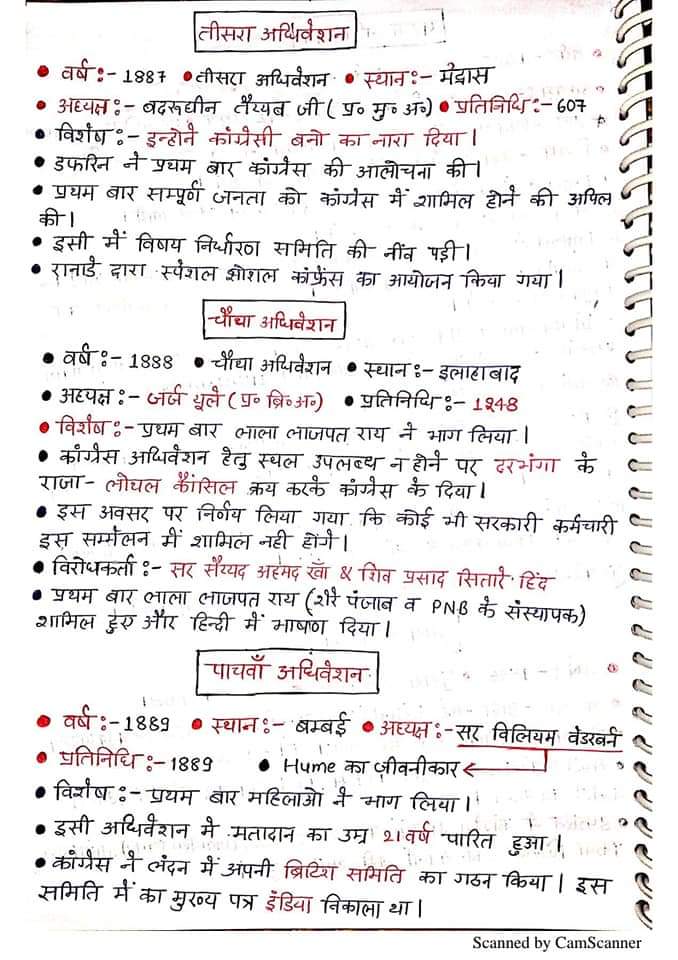 तीसरा अधिवेशन
• वर्ष :- 1887 • तीसरा अधिवेशन • स्थान :- मद्रास
• अध्यक्ष :- बदरूधीन तैय्यब जी ( प्र० मु० अ०) • प्रतिनिधि :- 607
• विशेष :- इन्होने कांग्रेसी बनो का नारा दिया।
• डफरिन ने प्रथम बार कांग्रेस की आलोचना की।
• प्रथम बार सम्पूर्ण जनता को कांग्रेस में शामिल होने की अपिल
की।
• इसी में विषय निर्धारण समिति की नींव पड़ी।
• रानाडे द्वारा स्पेशल शोशल कांफ्रेंस का आयोजन किया गया।
चौथा अधिवेशन
• वर्ष :- 1888 • चौथा अधिवेशन • स्थान :- इलाहाबाद
• अध्यक्ष :- जर्ज यूले ( प्र० ब्रि० अ०) • प्रतिनिधि :- 1248
• विशेष :- प्रथम बार लाला लाजपत राय ने भाग लिया।
• कांग्रेस अधिवेशन हेतु स्थल उपलब्ध न होने पर दरभंगा के
राजा- लोथल कौंसिल क्रय करके कांग्रेस के दिया।
• इस अवसर पर निर्णय लिया गया कि कोई भी सरकारी कर्मचारी
इस सम्मेलन में शामिल नही होंगे।
• विरोधकर्ता :- सर सैय्यद अहमद खाँ & शिव प्रसाद सितारे हिंद
• प्रथम बार लाला लाजपत राय (शेरे पंजाब व PNB के संस्थापक)
शामिल हुए और हिन्दी में भाषण दिया।
पाचवाँ अधिवेशन
• वर्ष :- 1889 • स्थान :- बम्बई • अध्यक्ष :- सर विलियम वेडरबर्न
• प्रतिनिधि :- 1889 • Hume का जीवनीकार
• विशेष :- प्रथम बार महिलाओं ने भाग लिया।
• इसी अधिवेशन मे मतादान का उम्र 21 वर्ष पारित हुआ।
• कांग्रेस ने लंदन में अपनी ब्रिटिश समिति का गठन किया। इस
समिति में का मुख्य पत्र इंडिया निकाला था।
Scanned by CamScanner